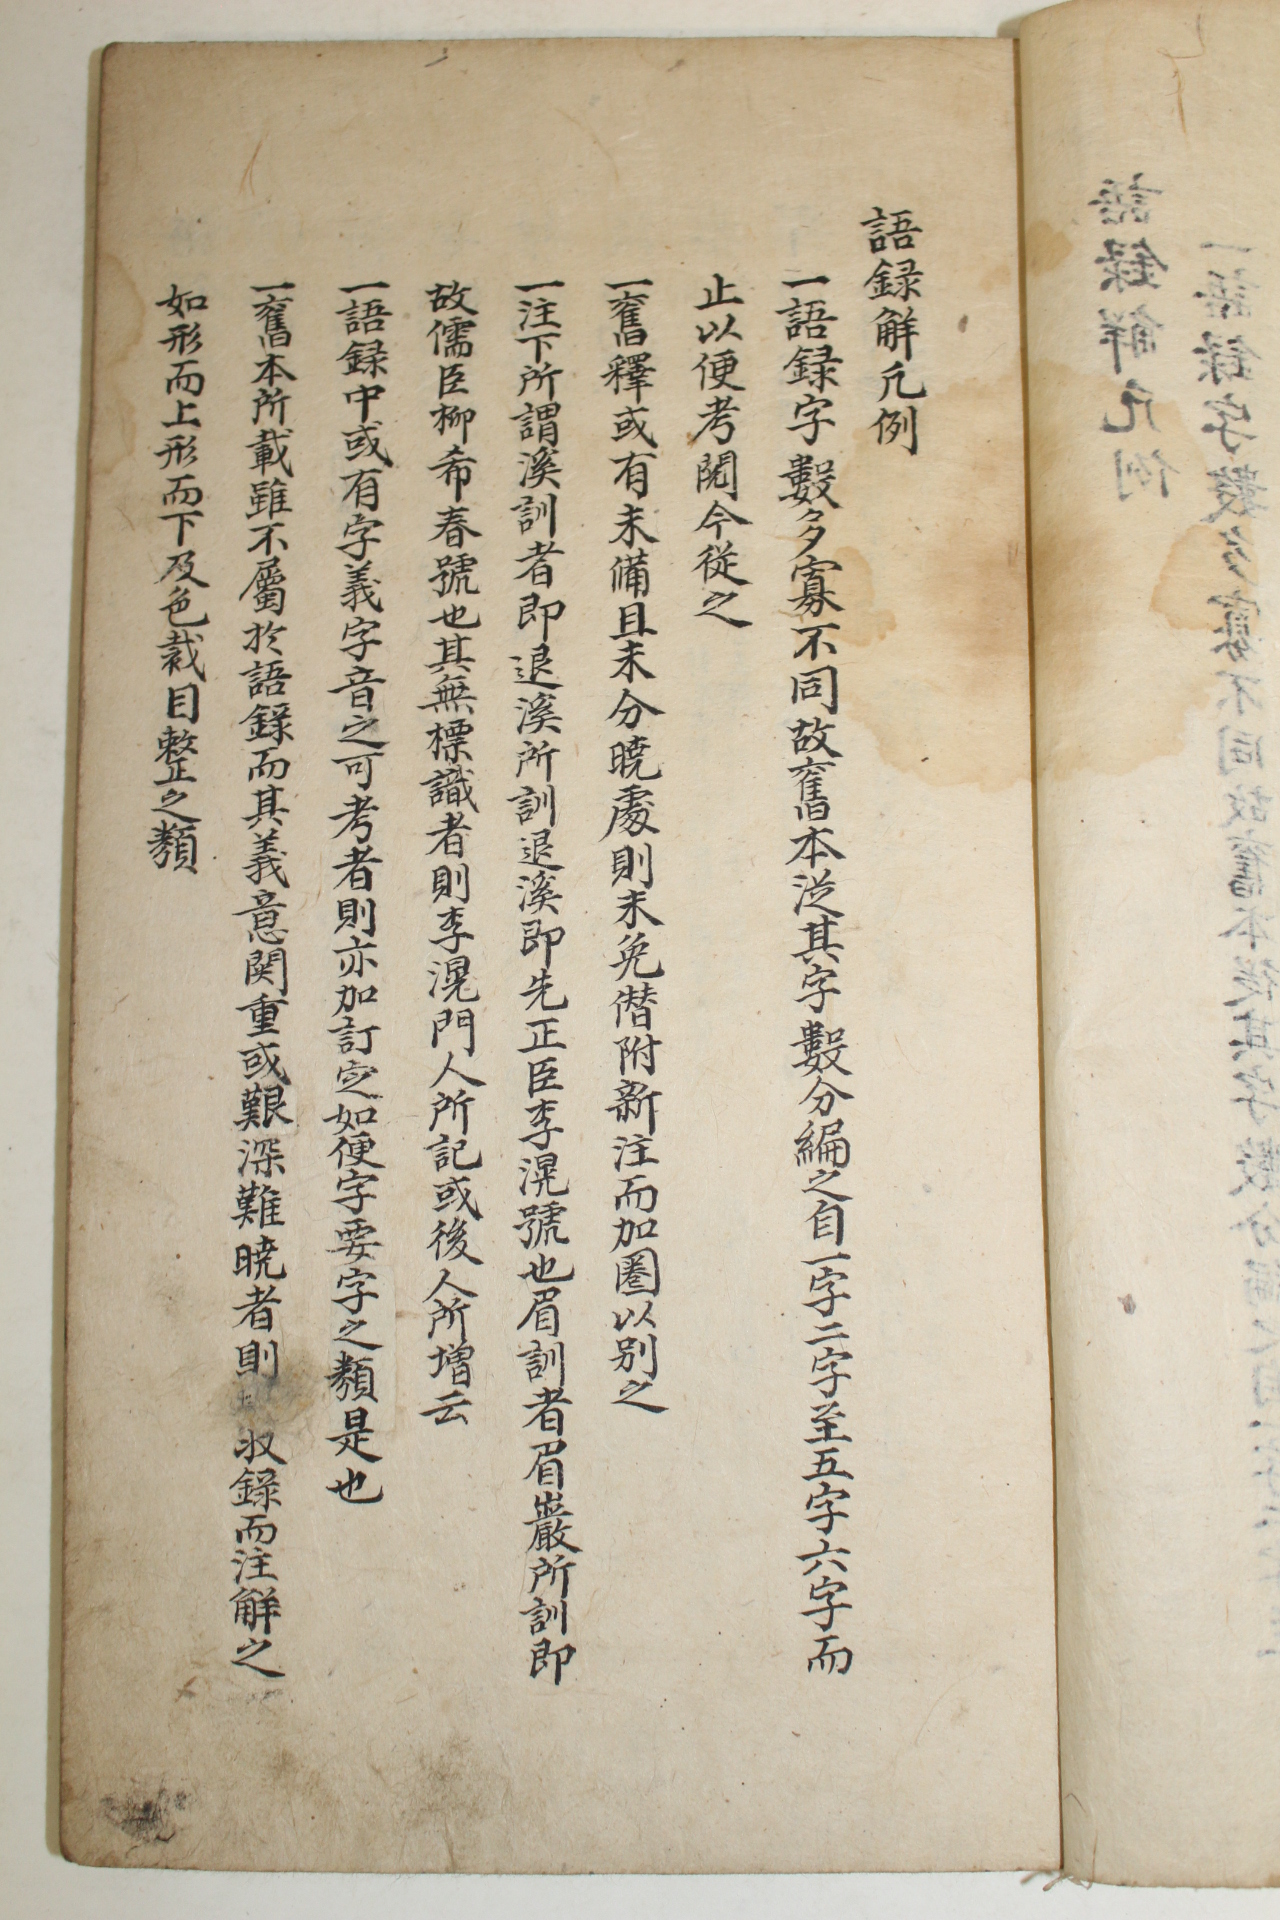 語録解凡例
一語録字數多寡不同故舊本従其字數分編之自一字二字至五字六字而
止以便考閱今従之
一舊釋或有未備且未分曉處則未免僭附新注而加圈以別之
一注下所謂溪訓者即退溪所訓退溪即先正臣李滉號也眉訓者眉巖所訓即
故儒臣柳希春號也其無標識者則李滉門人所記或後人所增云
一語録中或有字義字音之可考者則亦加訂定如便字要字之類是也
一舊本所載雖不屬於語錄而其義意関重或艱深難曉者則收錄而注解之
如形而上形而下及色裁目整之類